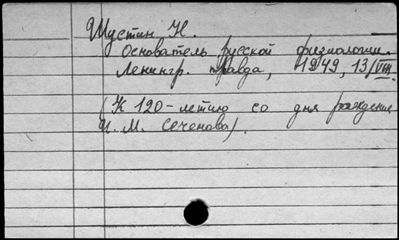 Шустин Н.
Основатель русской физиологии.
Ленингр. правда, 1949, 13/VIII.
(К 120-летию со дня рождения
И. М. Сеченова).